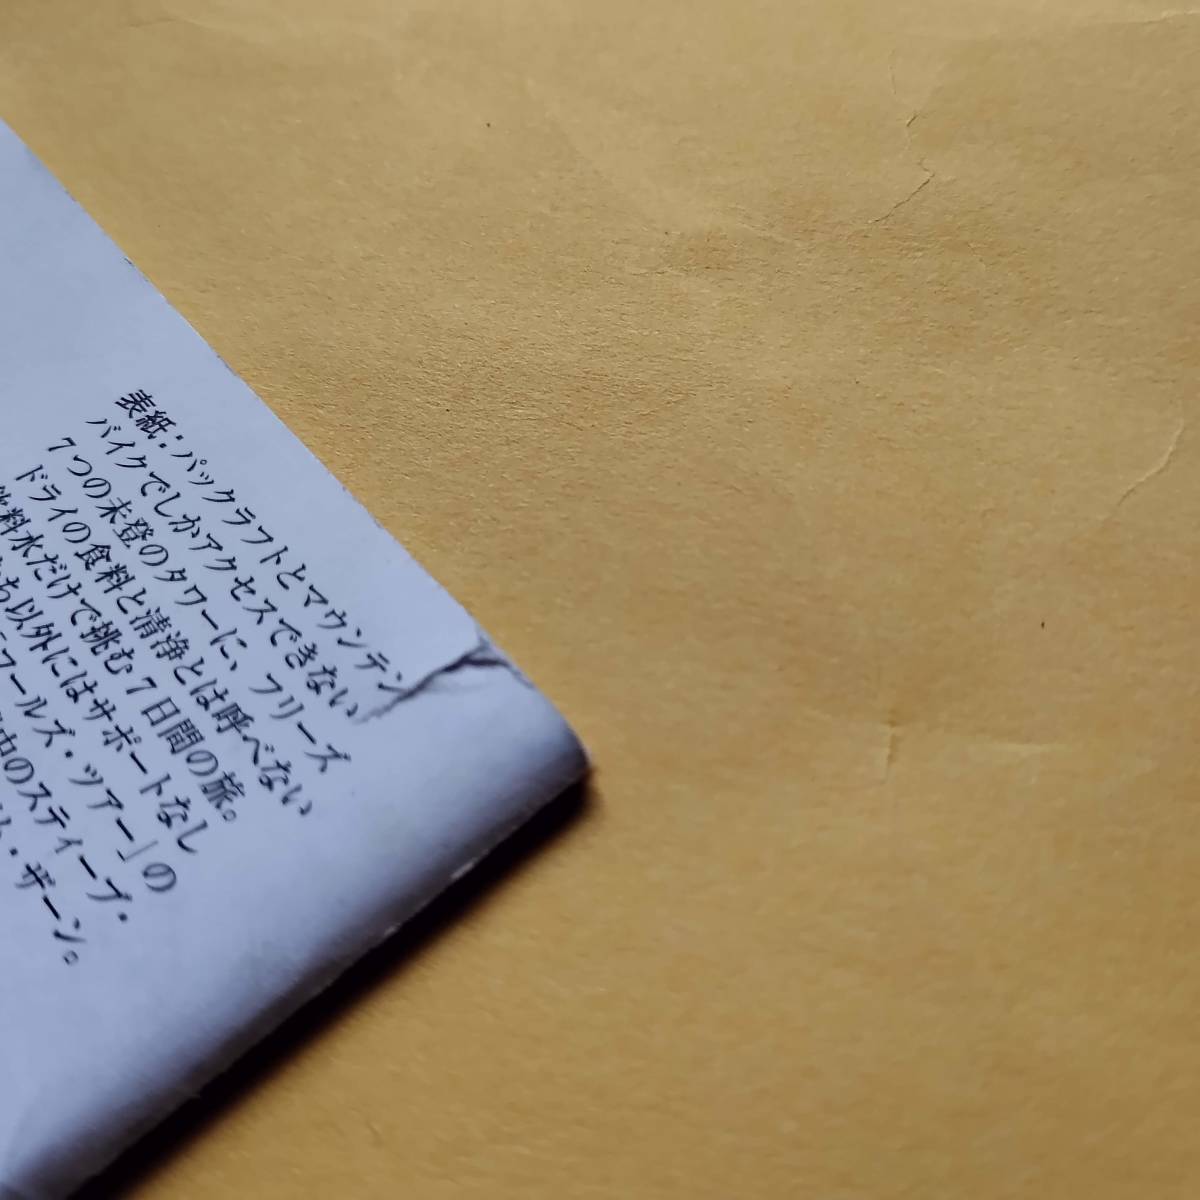 表紙：パックラフトとマウンテン
バイクでしかアクセスできない
7つの未登のタワーに、フリーズ
ドライの食料と清浄とは呼べない
飲料水だけで挑む7日間の旅。
ち以外にはサポートなし
ワールズ・ツアー」の
中のスティーブ・
ト・ザーン。